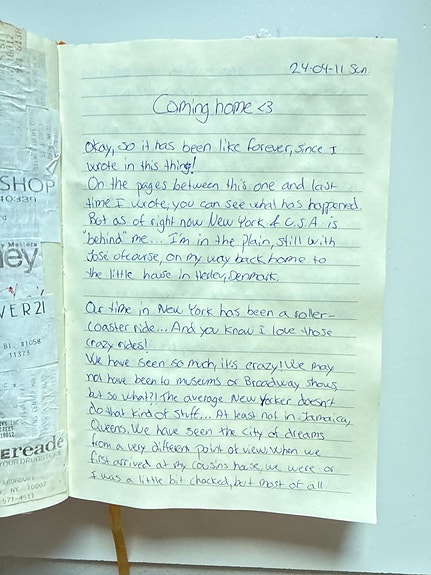 SHOP
40339
ey
VER 21
BI #1058
11373
Ereade
YOUR DRUGSTORE
NY, 10007
571-4511
24-04-11 Sun
Coming home <3
Okay, so it has been like forever, since I
wrote in this thing!
On the pages between this one and last
time I wrote, you can see what has happened.
But as of right now New York & U.S.A is
"behind" me... I'm in the plain, still with
José ofcourse, on my way back home to
the little house in Herlev, Denmark.
Our time in New York has been a roller-
coaster ride... And you know I love those
crazy rides!
We have seen so much, it's crazy! We may
not have been to museums or Broadway shows,
but so what?! The average New Yorker doesn't
do that kind of stuff... At least not in Jamaica,
Queens. We have seen the city of dreams
from a very different point of view. When we
first arrived at my cousins house, we were or
I was a little bit chocked, but most of all